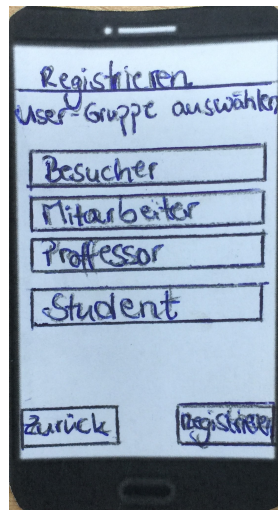 Registrieren
User-Gruppe auswählen
Besucher
Mitarbeiter
Proffessor
Student
Zurück registrieren